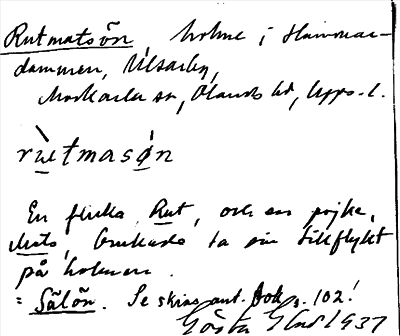 Rutmatsön holme i Hammar-
dammen, Ulsarby,
Morkarla sn, Olands hd, Upps. l.
rùtmasǿn
En flicka, Rut, och en pojke,
Mats, brukade ta sin tillflykt
på holmen.
= Sälön. Se skins ant. bok s. 102!
Gösta 1937